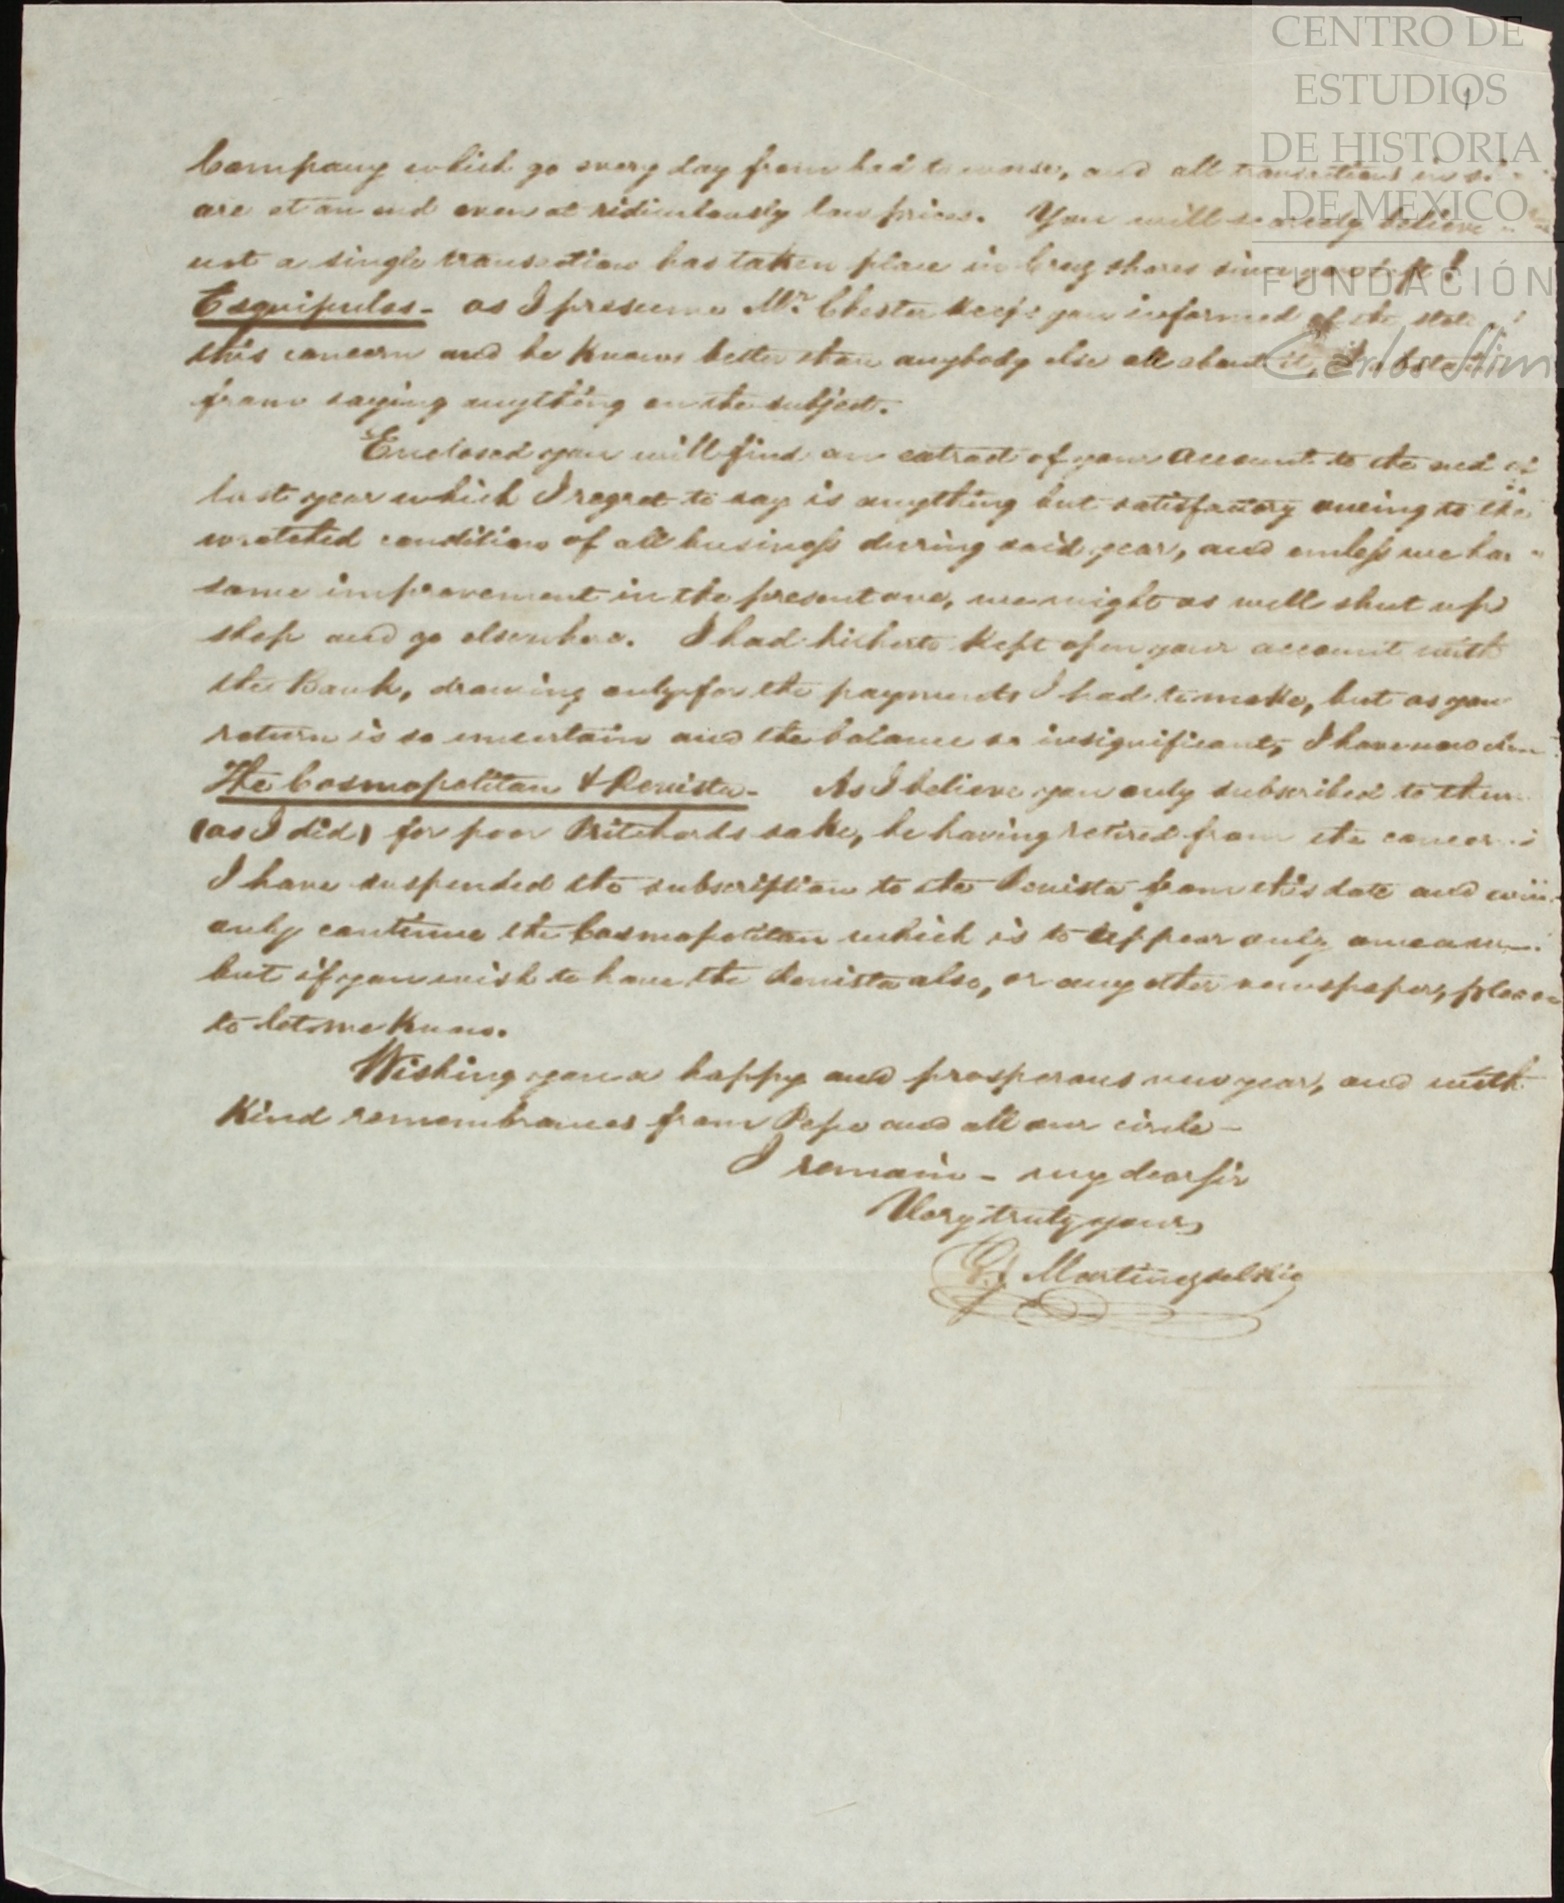 CENTRO DE
ESTUDIOS
DE HISTORIA
DE MEXICO
FUNDACIÓN
Carlos Slim
Company which go every day from bad to worse, and all transactions in
are at an end even at ridiculously low prices. You will scarcely believe
not a single transaction has taken place in Cruz shares since you left!
Esquipulas - as I presume Mr. Chester keeps you informed of the state
this concern and he knows better than anybody else all about it, I abstain
from saying anything on the subject.
Enclosed you will find an extract of your account to the end of
last year which I regret to say is anything but satisfactory owing to the
wretched condition of all business during said year, and unless we have
some improvement in the present one, we might as well shut up
shop and go elsewhere. I had hitherto kept open your account with
the Bank, drawing only for the payments I had to make, but as your
return is so uncertain and the balance so insignificant, I have now
The Cosmopolitan & Revista - As I believe you only subscribed to them
(as I did) for poor Pritchards sake, he having retired from the concern
I have suspended the subscription to the Revista from this date and will
only continue the Cosmopolitan which is to appear only once a
but if you wish to have the Revista also, or any other newspaper, please
to let me know.
Wishing you a happy and prosperous new year, and with
kind remembrances from Pepe and all our circle -
I remain - my dear sir
Very truly yours